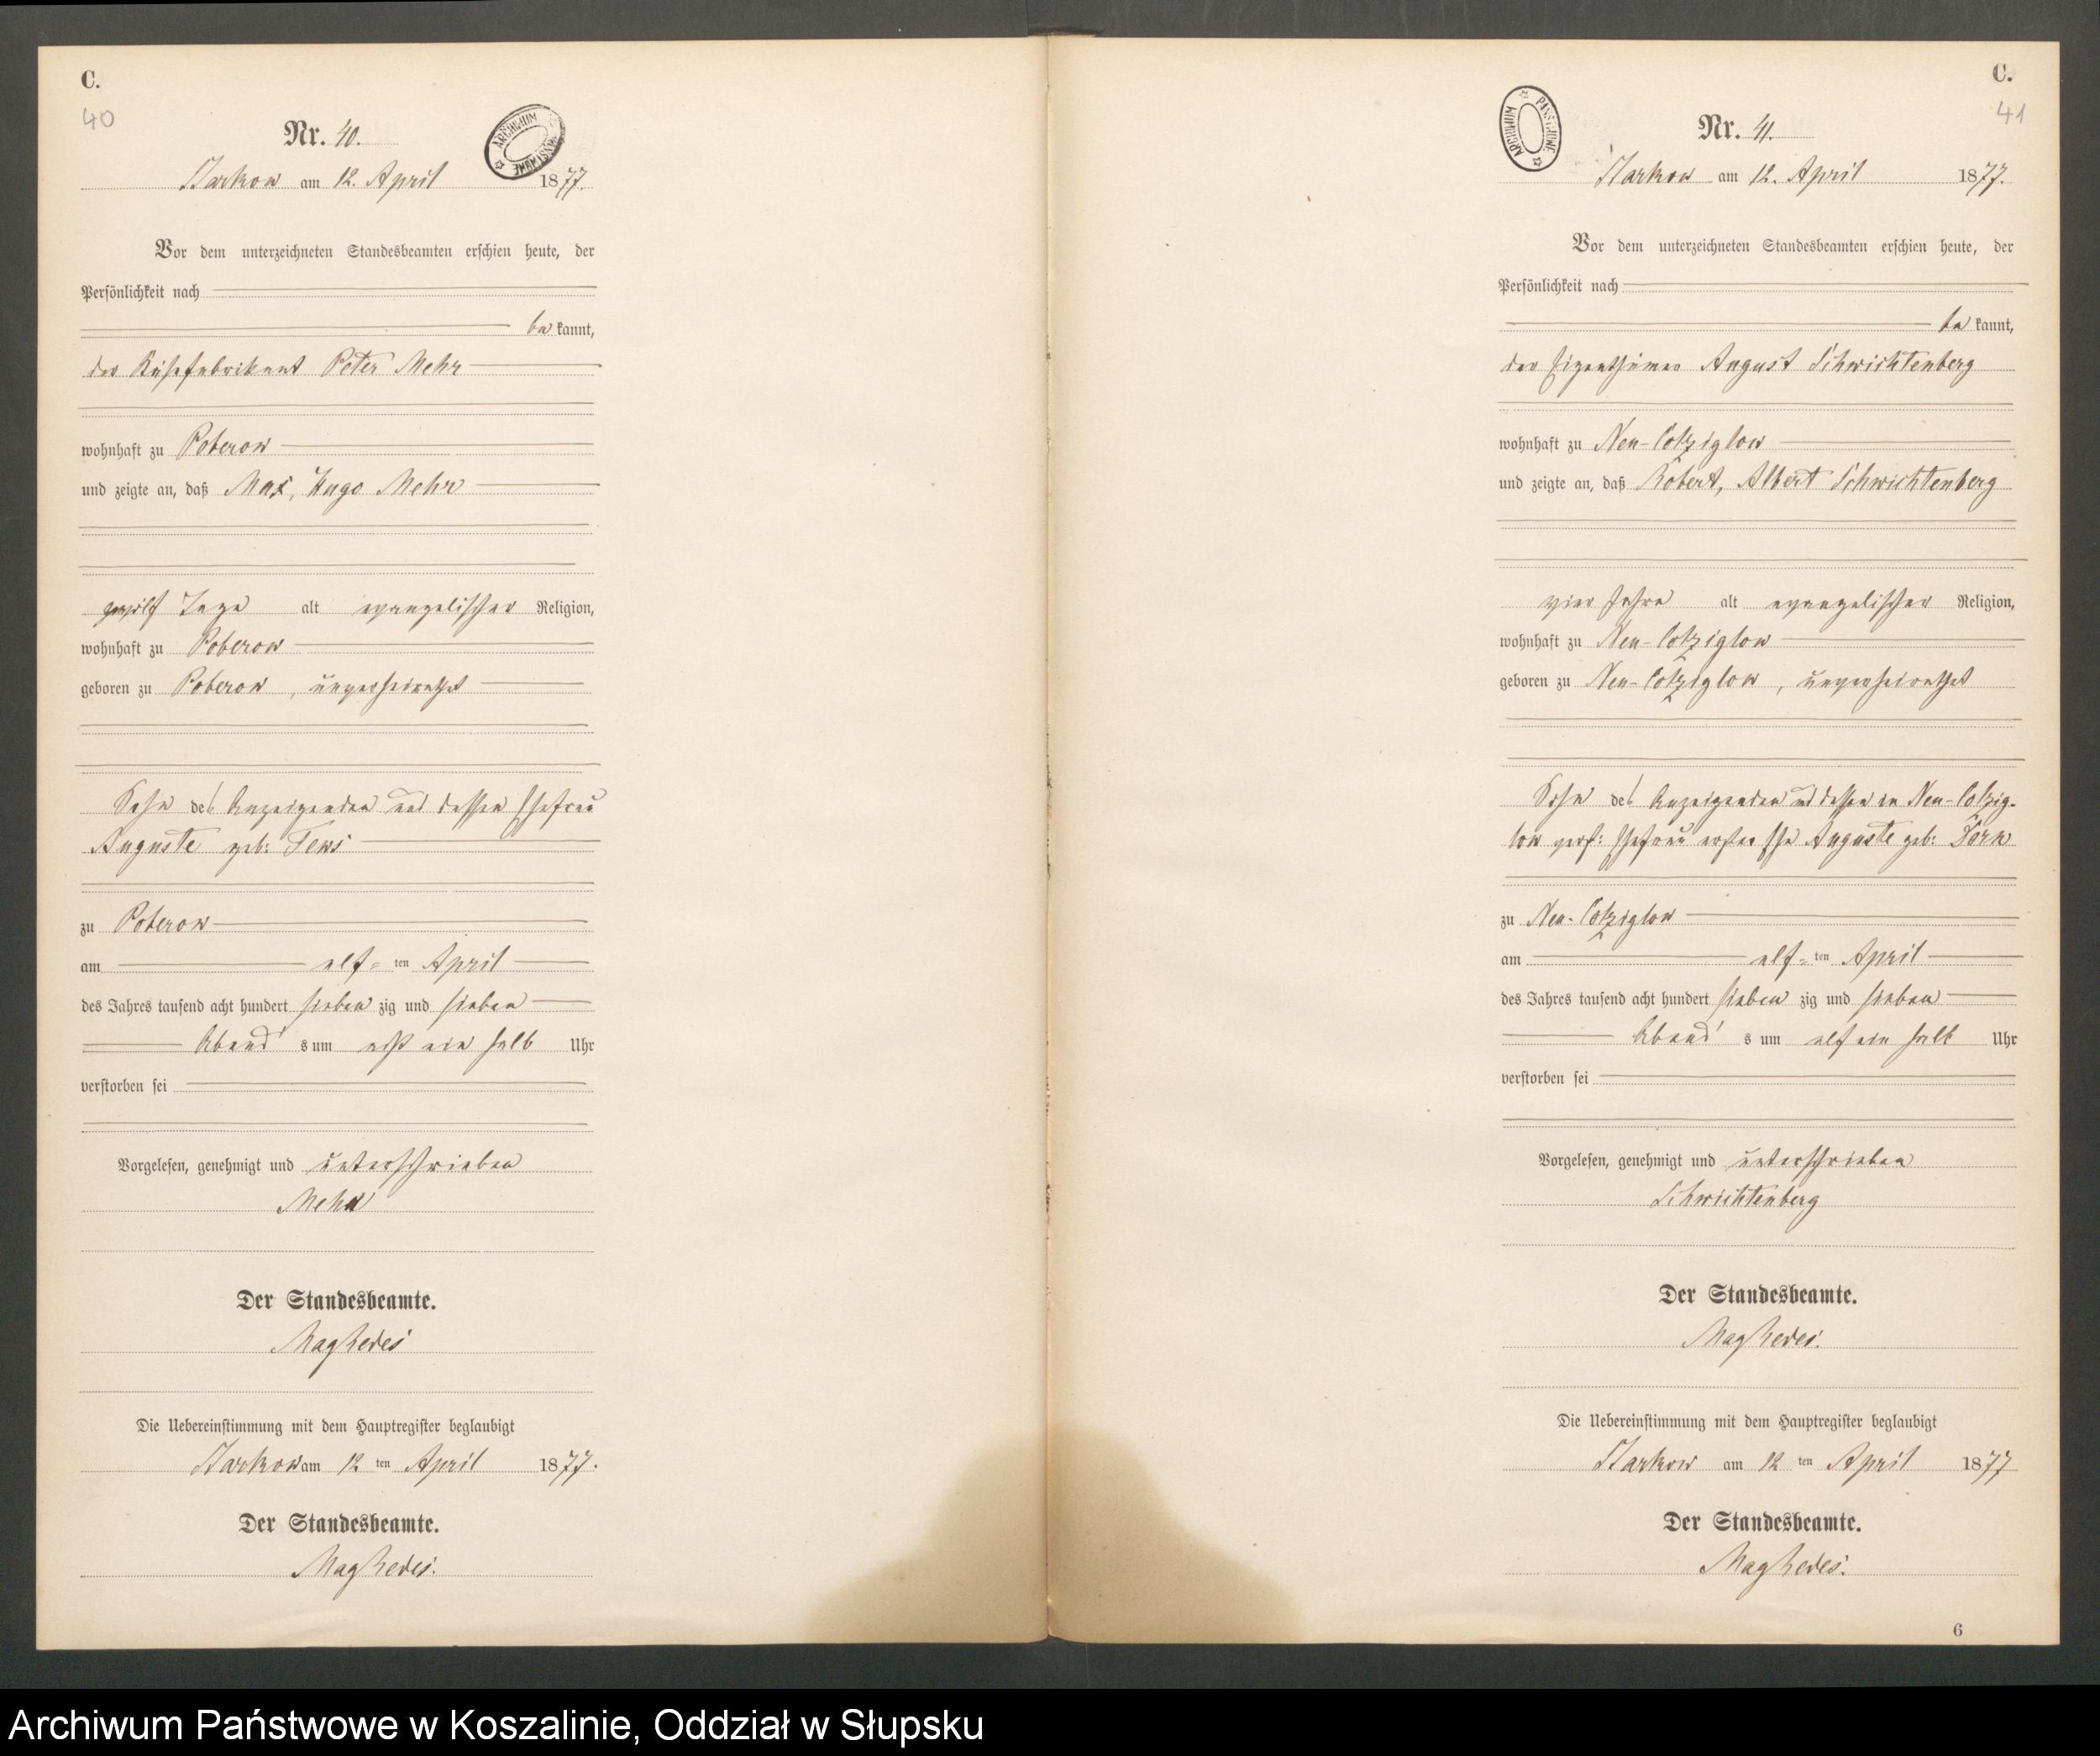 C.
40
Nr. 40.
ARCHIWUM PAŃSTWOWE
Starkow am 12. April 1877.
Vor dem unterzeichneten Standesbeamten erschien heute, der
Persönlichkeit nach
be kannt,
der Käsefabrikant Peter Mehr
wohnhaft zu Poberow
und zeigte an, daß Max, Hugo Mehr
zwölf Tage alt evangelischer Religion,
wohnhaft zu Poberow
geboren zu Poberow, unverheirathet
Sohn des Anzeigenden und dessen Ehefrau
Auguste geb: Tews
zu Poberow
am elf= ten April
des Jahres tausend acht hundert sieben zig und sieben
Abend s um ein halb Uhr
verstorben sei
Vorgelesen, genehmigt und unterschrieben
Mehr
Der Standesbeamte.
Die Uebereinstimmung mit dem Hauptregister beglaubigt
Starkow am 12 ten April 1877.
Der Standesbeamte.
C.
41
Nr. 41.
ARCHIWUM PAŃSTWOWE
Starkow am 12. April 1877.
Vor dem unterzeichneten Standesbeamten erschien heute, der
Persönlichkeit nach
be kannt,
der Eigenthümer August Schwichtenberg
wohnhaft zu Neu-Colziglow
und zeigte an, daß Robert, Albert Schwichtenberg
vier Jahre alt evangelischer Religion,
wohnhaft zu Neu-Colziglow
geboren zu Neu-Colziglow, unverheirathet
Sohn des Anzeigenden und dessen in Neu-Colzig-
low verst: Ehefrau erster Ehe Auguste geb: Dorn
zu Neu-Colziglow
am elf= ten April
des Jahres tausend acht hundert sieben zig und sieben
Abend s um elf ein halb Uhr
verstorben sei
Vorgelesen, genehmigt und unterschrieben
Schwichtenberg
Der Standesbeamte.
Die Uebereinstimmung mit dem Hauptregister beglaubigt
Starkow am 12 ten April 1877
Der Standesbeamte.
6
Archiwum Państwowe w Koszalinie, Oddział w Słupsku